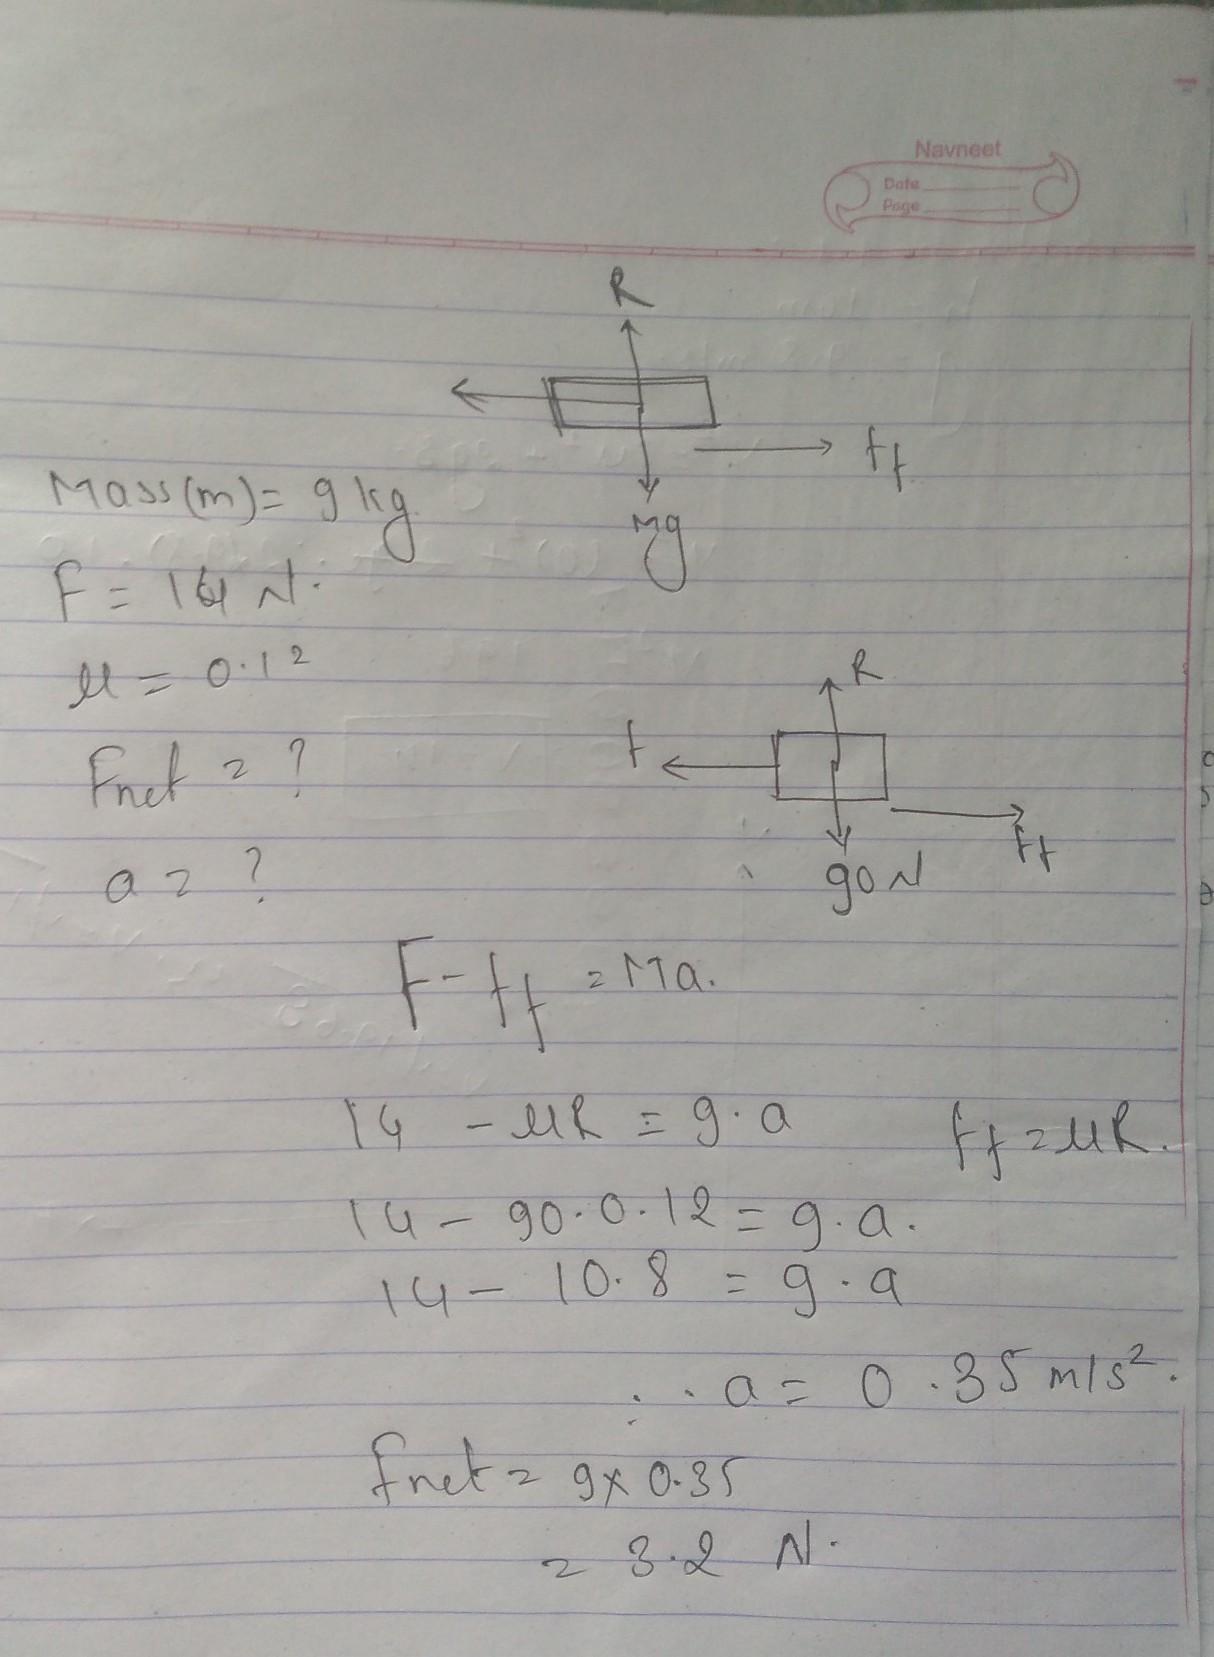 Navneet
Date
Page
R
ff
mg
Mass(m)= 9 kg.
F = 14 N.
μ = 0.12
Fnet = ?
a = ?
R
f
ff
90 N
F - ff = Ma.
14 - μR = 9.a
ff = μR.
14 - 90.0.12 = 9.a.
14 - 10.8 = 9.a
∴ a = 0.35 m/s².
fnet = 9x0.35
= 3.2 N.